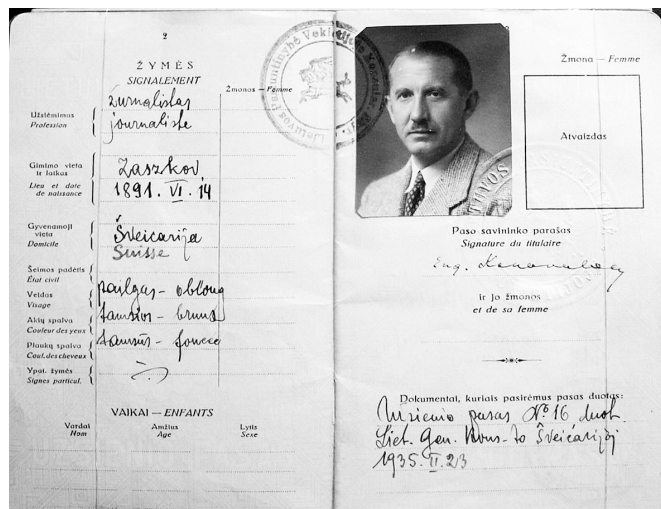 2
ŽYMĖS
SIGNALEMENT
Žmonos — Femme
Užsiėmimas
Profession
žurnalistas
journaliste
Gimimo vieta
ir laikas
Lieu et date
de naissance
Zaszkov,
1891. VI. 14
Gyvenamoji
vieta
Domicile
Šveicarija
Suisse
Šeimos padėtis
État civil
Veidas
Visage
pailgas - oblong
Akių spalva
Couleur des yeux
tamsios - bruns
Plaukų spalva
Coul. des cheveux
tamsūs - foncés
Ypat. žymės
Signes particul.
VAIKAI — ENFANTS
Vardai
Nom
Amžius
Age
Lytis
Sexe
Žmona — Femme
Atvaizdas
Paso savininko parašas
Signature du titulaire
Eug. Konovalec
ir jo žmonos
et de sa femme
Dokumentai, kuriais pasirėmus pasas duotas:
Užsienio pasas No 16 duot.
Liet. Gen. Kons-to Šveicarijoj
1935. II. 23